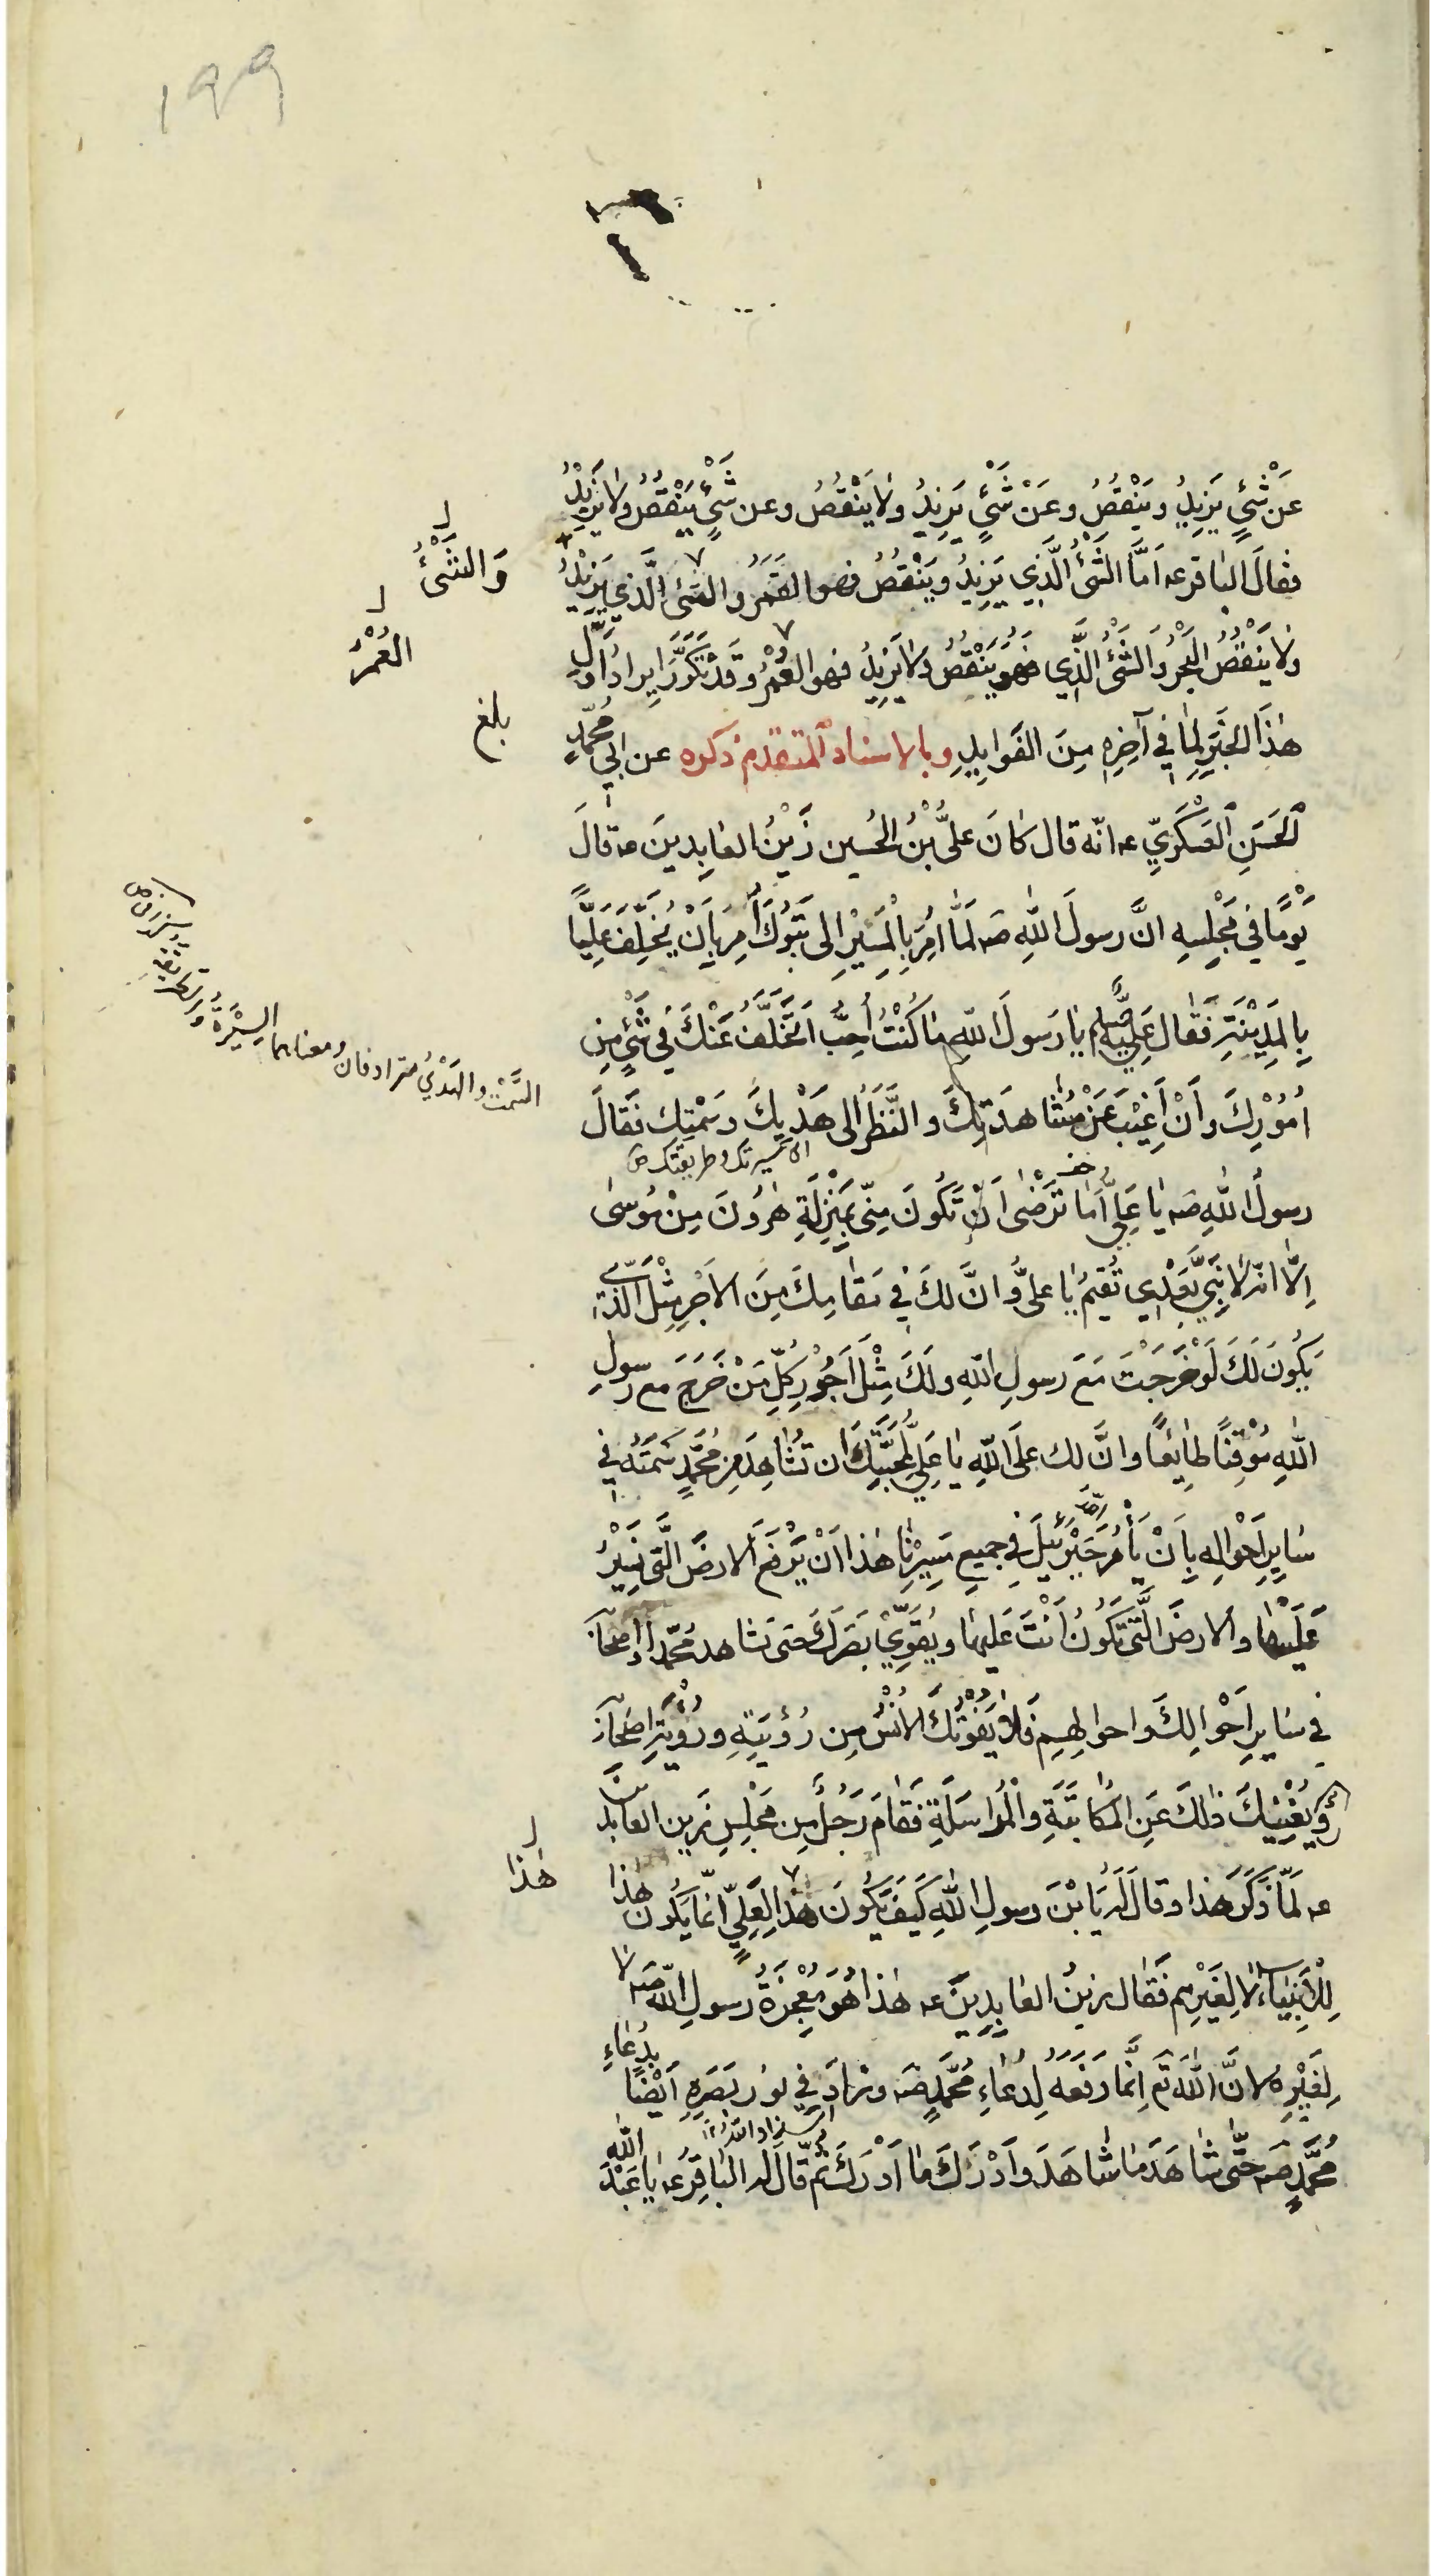 ١٩٩
عَنْ شَيْءٍ يَزِيدُ ويَنْقُصُ وعَنْ شَيْءٍ يَزِيدُ ولا يَنْقُصُ وعن شَيْءٍ يَنْقُصُ ولا يَزِيدُ
فقالَ الباقر عه اَمَّا الشَّئُ الَّذِي يَزِيدُ ويَنْقُصُ فهو القَمَرُ والشئ الَّذي يَزِيدُ
وَالشَّئُ
ولا يَنْقُصُ البَحْرُ والشَّئُ الَّذِي فَهُوَ يَنْقُصُ ولا يَزِيدُ فهو العُمْرُ وقَدْ تَكَرَّرَ اِيرادُ اَوَّلِ
العُمْرُ
هٰذَا الخَبَرِ لِمٰا فِي آخِرِهِ مِنَ الفَوايِدِ وبالاسناد المتقدم ذكره عن ابي مُحَمَّدٍ
بلغ
الحَسَنِ العَسْكَرِيِّ عه انّه قال كانَ عليُّ بْنُ الحُسين زَيْنُ العٰابِدينَ عه قالَ
يَوْمًا في مَجْلِسِهِ انَّ رسولَ اللهِ صه لَمّٰا اُمِرَ بِالْمَسِيْرِ الى تَبُوكَ اُمِرَ بِاَنْ يُخَلِّفَ عَلِيًّا
بِالمَدِيْنَةِ فَقٰال عَلِيٌّ يٰا رَسولَ اللهِ مٰا كُنْتُ اُحِبُّ اَتَخَلَّفُ عَنْكَ فِي شَيْءٍ مِن
اُمُوْرِكَ وَاَنْ اَغِيْبَ عَنْ مُشٰاهَدَتِكَ والنَّظَرِ الى هَدْيِكَ وسَمْتِكَ فَقالَ
السَّمْت والهَدْيُ مترادفان ومعناهما السِّيْرَةُ والطريقة
سيرتك وطريقتك
رسولُ اللهِ صه يٰا عَلِيُّ اَمٰا تَرْضٰى اَنْ تَكُونَ مِنّي بِمَنْزِلَةِ هٰرُونَ مِنْ مُوسىٰ
اِلّا انّه لا نَبِيَّ بَعْدِي تُقِيمُ يٰا عليُّ وانَّ لَكَ فِي مَقٰامِكَ مِنَ الاَجْرِ مِثْلَ الَّذي
يَكُونُ لَكَ لَوْ خَرَجْتَ مَعَ رسولِ اللهِ ولَكَ مِثْلُ اُجُوْرِ كُلِّ مَنْ خَرَجَ مع رسولِ
اللهِ مُوْقِنًا طٰايِعًا وانَّ لك عَلَى اللهِ يٰا عَلِيُّ لِمَحَبَّتِكَ ان تُشٰاهِدَ مِن مُحَمَّدٍ سَمْتَهُ فِي
سٰايِرِ اَحْوٰالِهِ بِاَنْ يَأْمُرَ جَبْرَئِيلَ فِي جميعِ مَسِيْرِنٰا هٰذا اَنْ يَرْفَعَ الارضَ الَّتي نَسِيْرُ
عَلَيْهٰا والارضَ الَّتي تَكُونُ اَنْتَ عَليها ويُقَوِّيَ بَصَرَكَ حتى تشاهد مُحَمَّدًا واصْحابَهُ
في سٰايِرِ اَحْوٰالِكَ واحوالِهِم فَلا يَفُوْتُكَ الاُنْسُ مِن رُؤيَتِهِ ورُؤْيَةِ اصحابه
ويُغْنِيْكَ ذٰلِكَ عَنِ المُكٰاتَبَةِ والْمُرٰاسَلَةِ فَقٰامَ رَجُلٌ مِن مَجْلِسِ زَين العابدين
عه لَمّٰا ذَكَرَ هٰذا وقالَ لَه يَا بْنَ رسولِ اللهِ كَيْفَ يَكُونَ هذا لِعَلِيٍّ انّما يَكُون هٰذا
هٰذا
لِلْاَنْبِيٰاءِ لا لِغَيْرِهِم فَقٰال زينُ العٰابِدِينَ عه هٰذا هُوَ مُعْجِزَةُ رسولِ اللهِ صه لا
لِغَيْرِه لانَّ اللهَ تَع اِنَّمٰا رَفَعَهُ لِدُعٰاءِ مُحَمَّدٍ صه وزادَ فِي نور بَصَرِهِ اَيْضًا بِدُعٰاءِ
مُحَمَّدٍ صه حَتّٰى شٰاهَدَ مٰا شٰاهَدَ واَدْرَكَ مٰا اَدْرَكَ ثُمّ قٰالَ له البٰاقِرُ عه يٰا عَبْدَ اللهِ